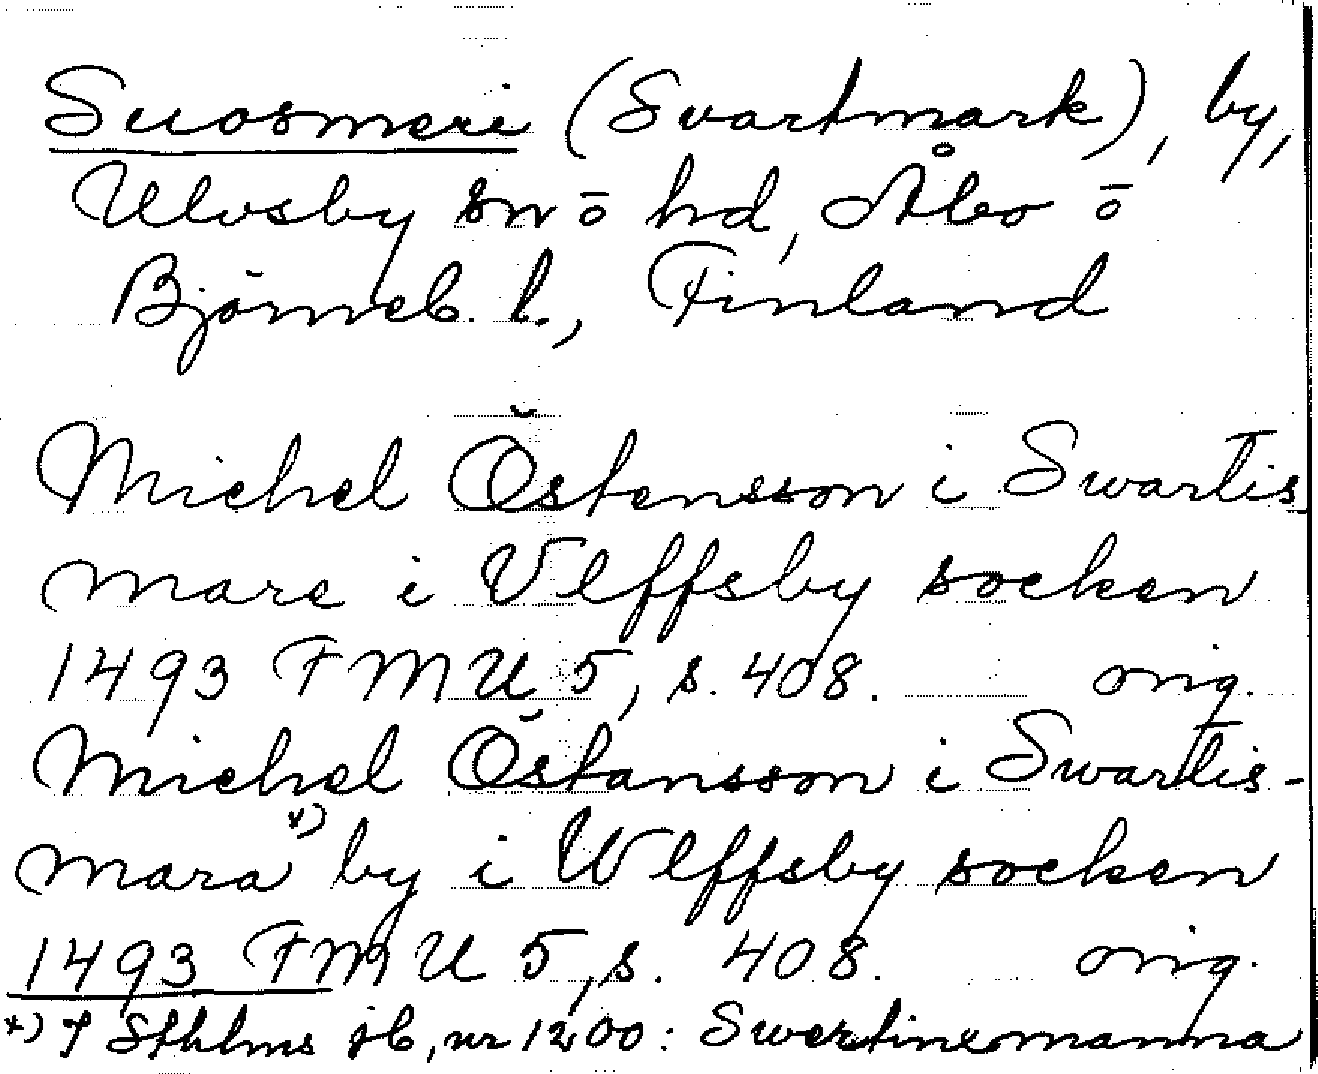 Suosmeri (Svartmark), by,
Ulvsby sn ō hd, Åbo ō
Björneb. l., Finland
Michel Östensson i Swartis
mare i Vlffsby socken
1493 FMU 5, s. 408. orig.
Michel Östansson i Swartis-
mara *) by i Wlffsby socken
1493 FMU 5, s. 408. orig.
*) I Sthlms jb, nr 1200: Swertinxmanna